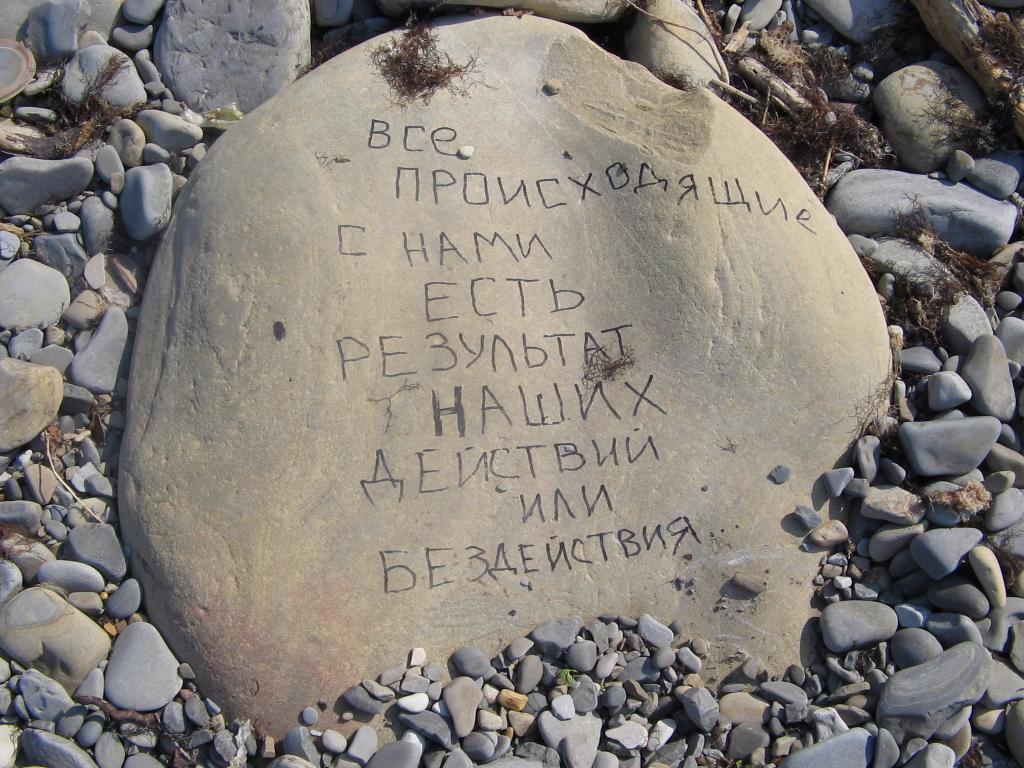 ВСЕ
ПРОИСХОДЯЩИЕ
С НАМИ
ЕСТЬ
РЕЗУЛЬТАТ
НАШИХ
ДЕЙСТВИЙ
ИЛИ
БЕЗДЕЙСТВИЯ...